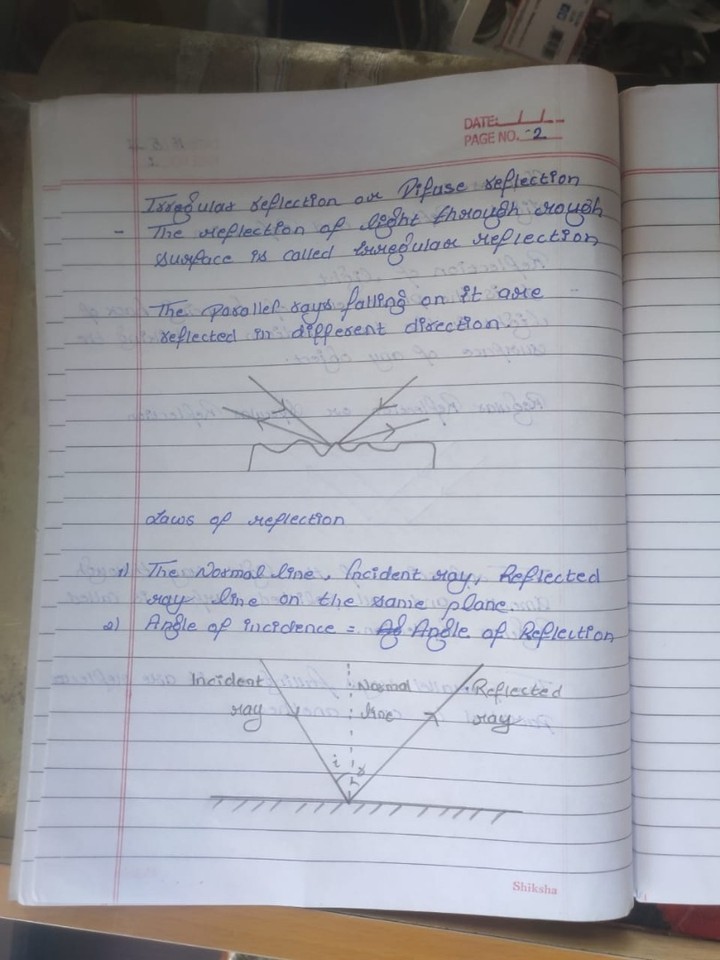 DATE: / /
PAGE NO. 2
Irregular reflection or Difuse reflection
- The reflection of light through rough
surface is called irregular reflection
The parallel rays falling on it are
reflected in different direction.
Laws of reflection
1) The Normal line, Incident ray, Reflected
ray line on the same plane.
2) Angle of incidence = Angle of Reflection
Incident
ray
Normal
line
Reflected
ray
i
r
Shiksha